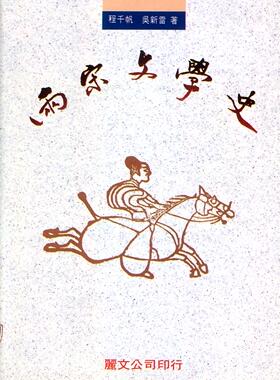 程千帆 吳新雷 著
兩宋文學史
麗文公司印行